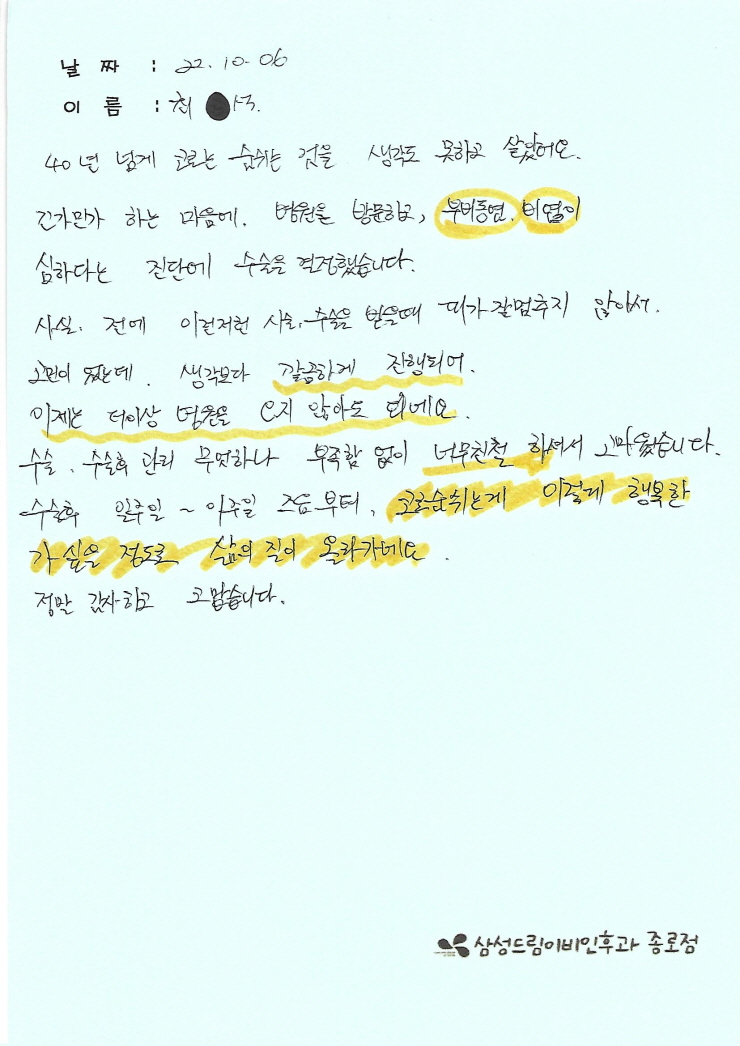 날 짜 : 22.10.06
이 름 : 최 석.
40년 넘게 코로는 숨쉬는 것을 생각도 못하고 살았어요.
긴가민가 하는 마음에. 병원을 방문하고, 부비동염, 비염이
심하다는 진단에 수술을 결정했습니다.
사실. 전에 이런저런 시술, 수술을 받을때 피가 잘멈추지 않아서.
고민이 있는데. 생각보다 깔끔하게 진행되어.
이제는 더이상 병원을 오지 않아도 되네요.
수술, 수술후 관리 무엇하나 부족함 없이 너무친절 하셔서 고마웠습니다.
수술후 일주일 ~ 이주일 즈음부터, 코로숨쉬는게 이렇게 행복한
가 싶을 정도로 삶의 질이 올라가네요.
정말 감사하고 고맙습니다.
삼성드림이비인후과 종로점